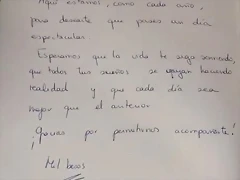 Aquí estamos, como cada año,
para desearte que pases un día
espectacular.
Esperamos que la vida te siga sonriendo,
que todos tus sueños se vayan haciendo
realidad y que cada día sea
mejor que el anterior.
¡Gracias por permitirnos acompañarte!
Mil besos